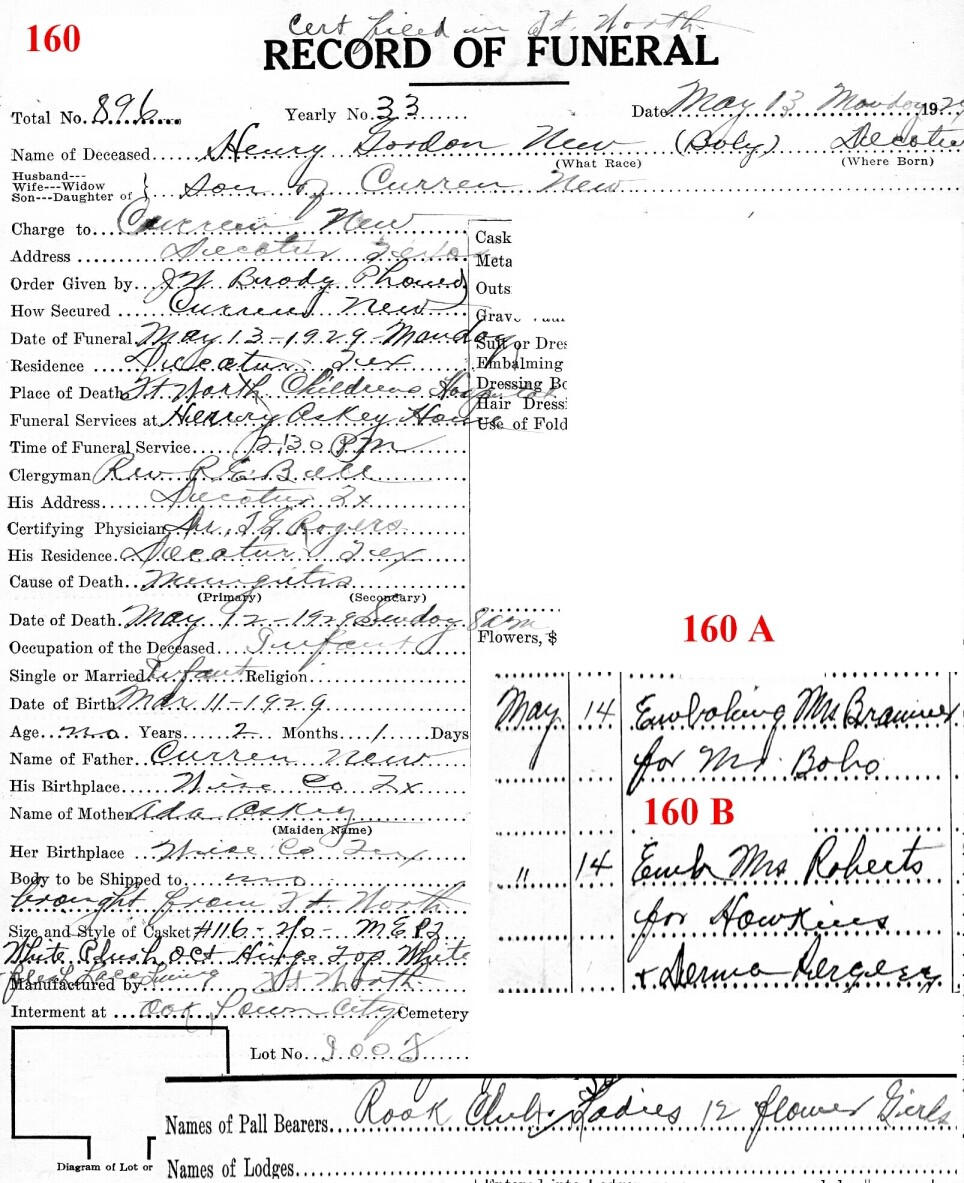 160
Cert filed in Ft. Worth
RECORD OF FUNERAL
Total No. 896 Yearly No. 33 Date May 13 Monday 1929
Name of Deceased Henry Gordon New (Boly) Decatur
(What Race) (Where Born)
Husband---
Wife---Widow
Son---Daughter of } Son of Curren New
Charge to Curren New
Address Decatur Texas
Order Given by J W Brody Phoned
How Secured Curren New
Date of Funeral May 13 - 1929 - Monday
Residence Decatur Tex
Place of Death Ft Worth Childrens Hospital
Funeral Services at Henry Askey House
Time of Funeral Service 2:30 P M
Clergyman Rev R. E. Bell
His Address Decatur Tx
Certifying Physician Dr. T G Rogers
His Residence Decatur Tex
Cause of Death Meningitis
(Primary) (Secondary)
Date of Death May 12 - 1929 Sunday 8 am
Occupation of the Deceased Infant
Single or Married Infant Religion
Date of Birth Mar 11 - 1929
Age no Years 2 Months 1 Days
Name of Father Curren New
His Birthplace Wise Co Tx
Name of Mother Ada Askey
(Maiden Name)
Her Birthplace Wise Co Tex
Body to be Shipped to no
brought from Ft Worth
Size and Style of Casket #116 - 2/0 -
White Plush Oct Hinge Top White
Manufactured by Ft Worth
Interment at Oak Lawn City Cemetery
Lot No.
Diagram of Lot or
Cask
Meta
Outs
Grav
Suit or Dres
Embalming
Dressing Bo
Hair Dressi
Use of Fold
Flowers, $
160 A
May 14 Embalming Mrs
for Mr. Bobo
160 B
" 14 Emb Mrs Roberts
for Hawkins
Names of Pall Bearers Rook Club Ladies 12 flower Girls
Names of Lodges